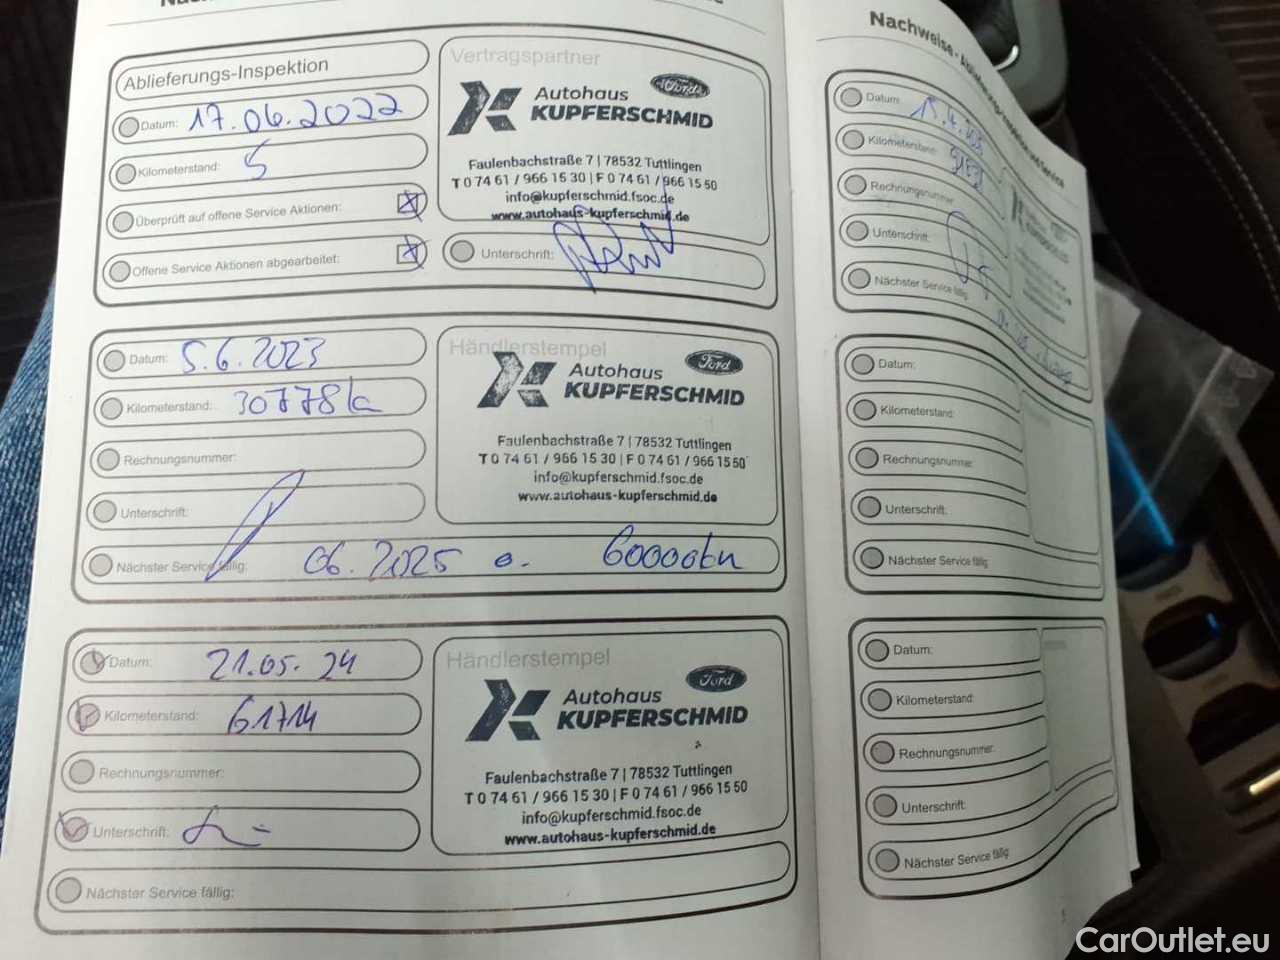 Ablieferungs-Inspektion
Datum: 17.06.2022
Kilometerstand: 5
Überprüft auf offene Service Aktionen:
Offene Service Aktionen abgearbeitet:
Vertragspartner
Ford
Autohaus
KUPFERSCHMID
Faulenbachstraße 7 | 78532 Tuttlingen
T 0 74 61 / 966 15 30 | F 0 74 61 / 966 15 50
info@kupferschmid.fsoc.de
www.autohaus-kupferschmid.de
Unterschrift:
Datum: 5.6.2023
Kilometerstand: 30778
Rechnungsnummer:
Unterschrift:
Nächster Service fällig: 06.2025 o. 60000km
Händlerstempel
Ford
Autohaus
KUPFERSCHMID
Faulenbachstraße 7 | 78532 Tuttlingen
T 0 74 61 / 966 15 30 | F 0 74 61 / 966 15 50
info@kupferschmid.fsoc.de
www.autohaus-kupferschmid.de
Datum: 21.05.24
Kilometerstand: 61714
Rechnungsnummer:
Unterschrift:
Nächster Service fällig:
Händlerstempel
Ford
Autohaus
KUPFERSCHMID
Faulenbachstraße 7 | 78532 Tuttlingen
T 0 74 61 / 966 15 30 | F 0 74 61 / 966 15 50
info@kupferschmid.fsoc.de
www.autohaus-kupferschmid.de
Nachweise - Ablieferungs-Inspektion und Service
Datum:
Kilometerstand:
Rechnungsnummer:
Unterschrift:
Nächster Service fällig:
Datum:
Kilometerstand:
Rechnungsnummer:
Unterschrift:
Nächster Service fällig
Datum:
Kilometerstand:
Rechnungsnummer:
Unterschrift:
Nächster Service fällig
CarOutlet.eu